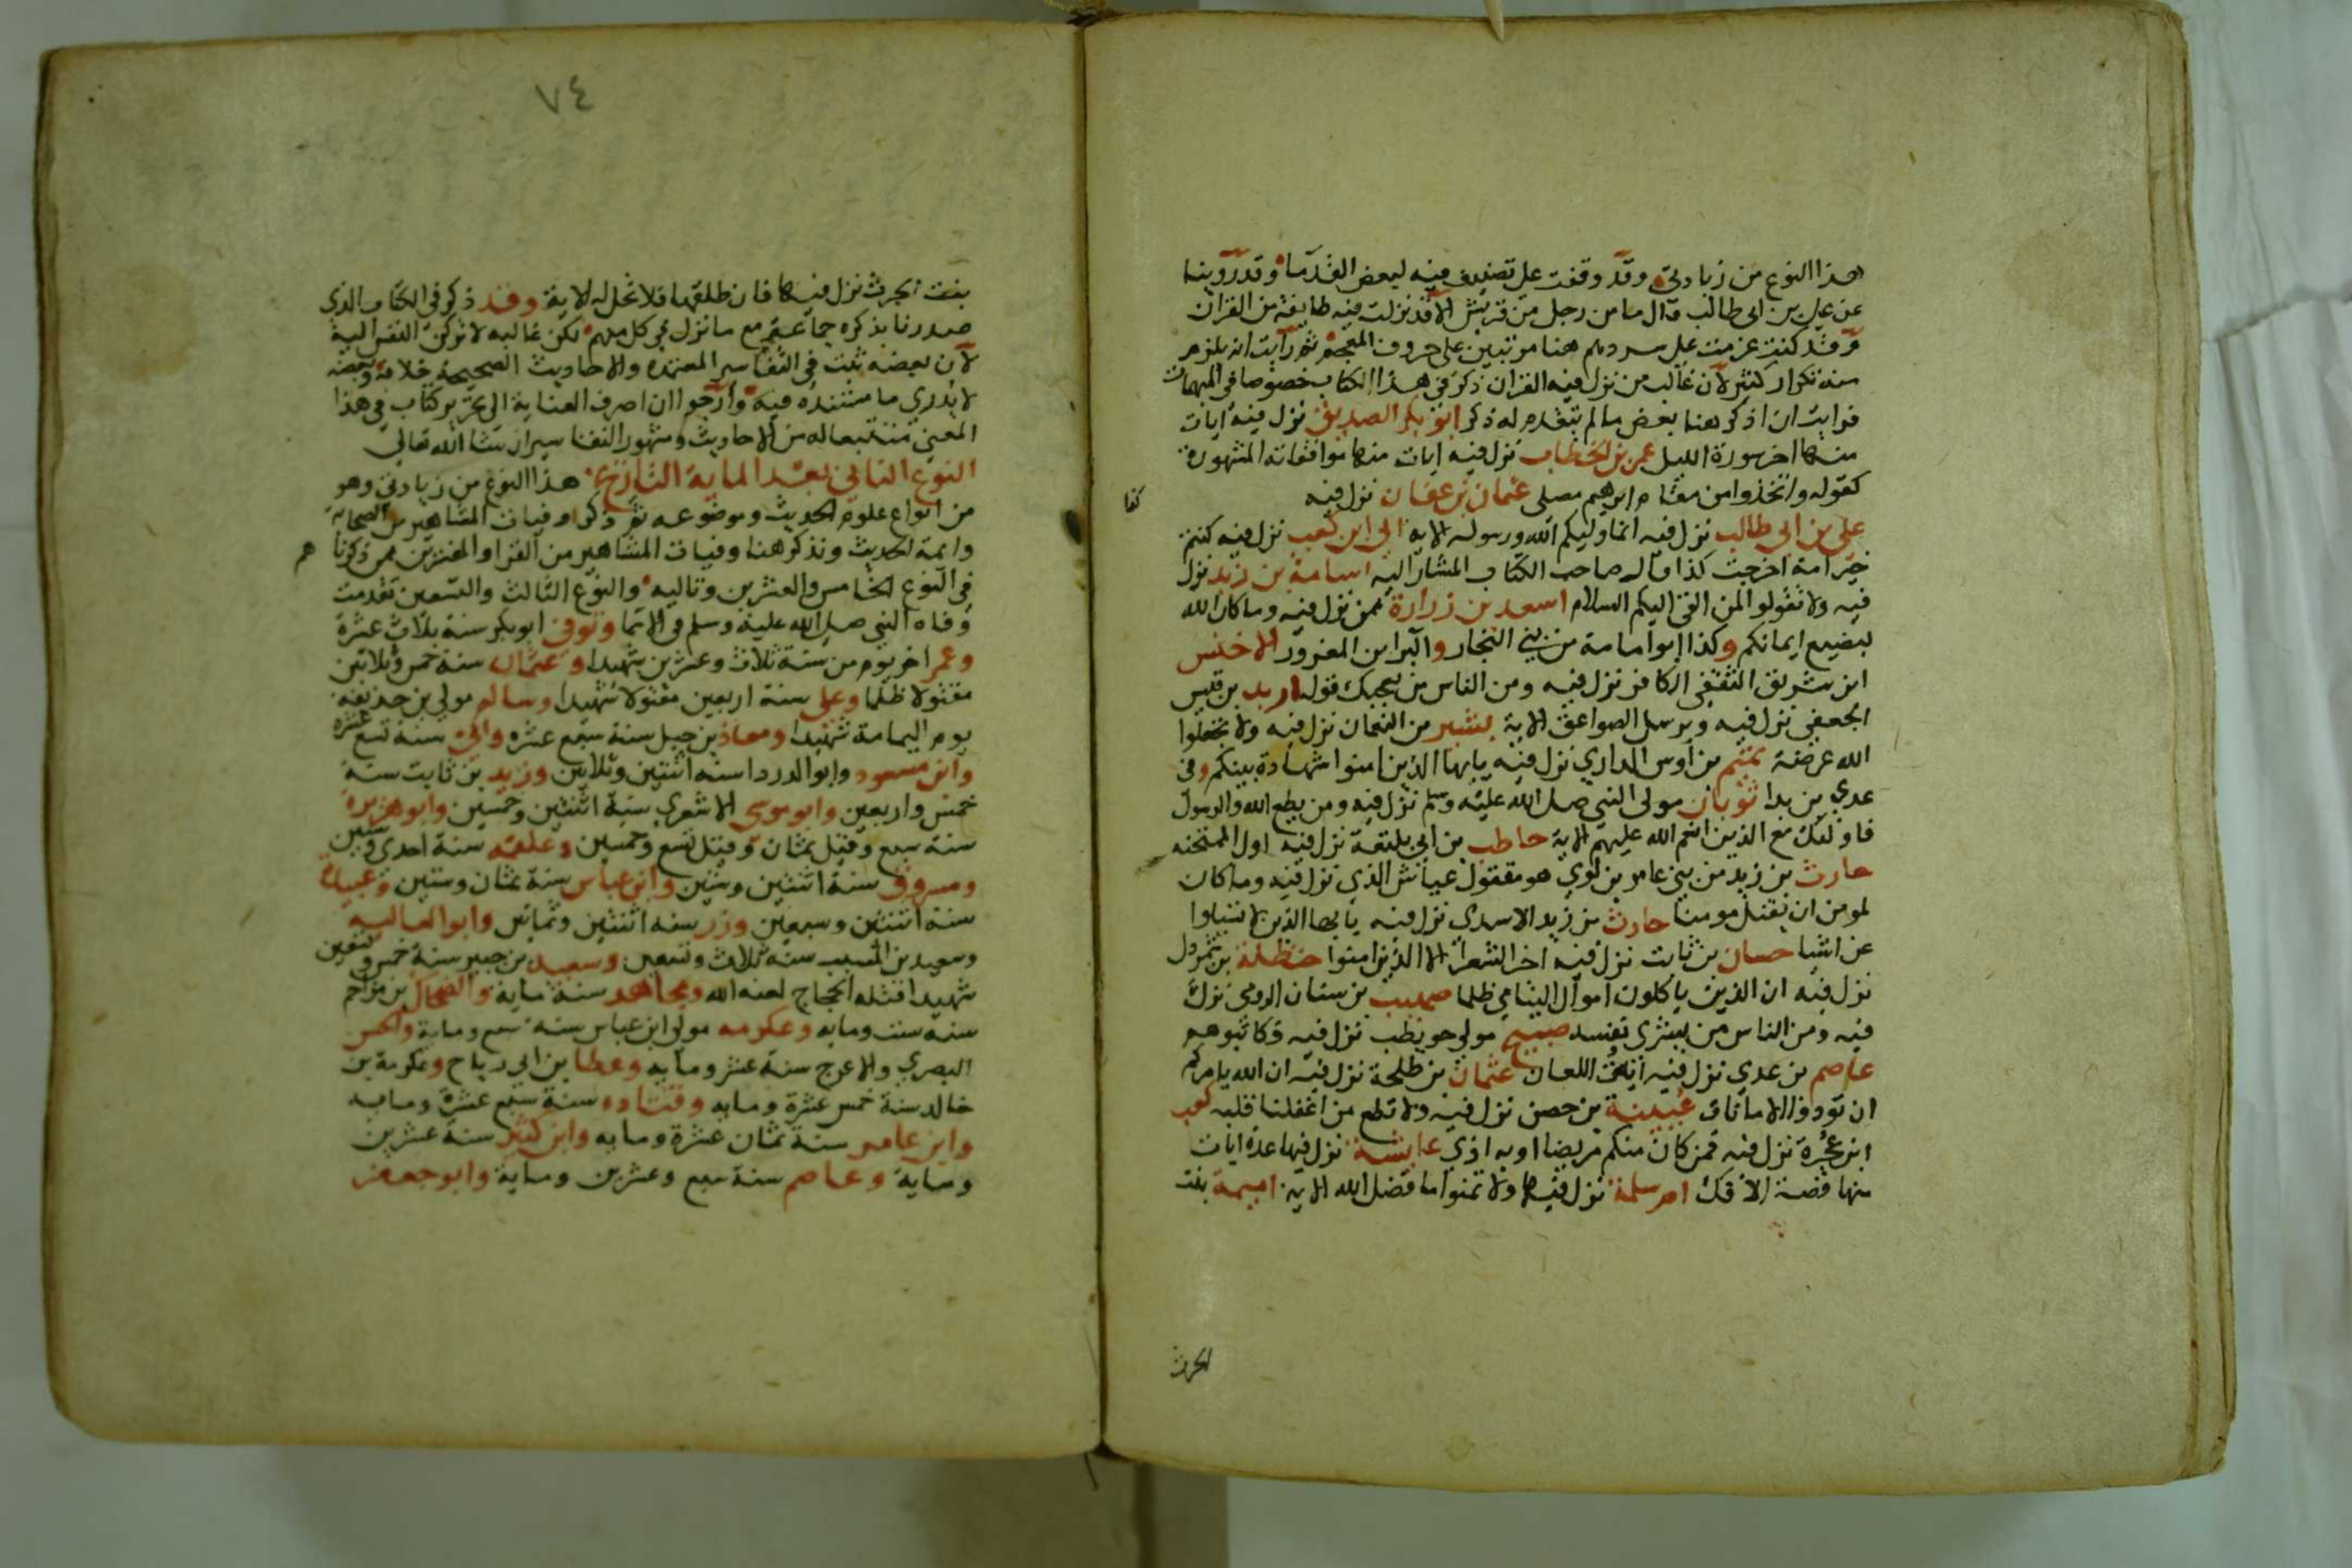 هذا النوع من زيادتي وقد وقفت على تصنيف فيه لبعض القدما وقد روينا
عن علي بن ابي طالب قال ما من رجل من قريش الا قد نزلت فيه طايفة من القران
وقد كنت عزمت على سردهم هنا مرتبين على حروف المعجم ثم رايت انه يلزم
منه تكرار كثير لان غالب من نزل فيه القران ذكر في هذا الكتاب خصوصا في المبهمات
فرايت ان اذكر هنا بعض ما لم يتقدم له ذكر ابو بكر الصديق نزل فيه ايات
منها اخر سورة الليل عمر بن الخطاب نزل فيه ايات منها موافقاته المشهورة
كقوله واتخذوا من مقام ابرهيم مصلى عثمان بن عفان نزل فيه
علي بن ابي طالب نزل فيه انما وليكم الله ورسوله الاية ابي ابن كعب نزل فيه كنتم
خير امة اخرجت كذا قال صاحب الكتاب المشار اليه اسامة بن زيد نزل
فيه ولا تقولوا لمن القى اليكم السلام اسعد بن زرارة ممن نزل فيه وما كان الله
ليضيع ايمانكم وكذا ابو امامة من بني النجار والبرا بن المعرور الاخنس
ابن شريق الثقفي الكافر نزل فيه ومن الناس من يعجبك قوله اربد بن قيس
الجعفي نزل فيه ويرسل الصواعق الاية بشير بن النعمان نزل فيه ولا تجعلوا
الله عرضة تميم بن اوس الداري نزل فيه يايها الذين امنوا شهادة بينكم وفي
عدي بن بدا ثوبان مولى النبي صلى الله عليه وسلم نزل فيه ومن يطع الله والرسول
فاولئك مع الذين انعم الله عليهم الاية حاطب بن ابي بلتعة نزل فيه اول الممتحنه
حارث بن زيد من بني عامر بن لوي هو مقتول عياش الذي نزل فيه وما كان
لمومن ان يقتل مومنا حارث بن زيد الاسدي نزل فيه يايها الذين لا تسالوا
عن اشيا حسان بن ثابت نزل فيه اخر الشعرا الا الذين امنوا حنظلة بن شمردل
نزل فيه ان الذين ياكلون اموال اليتامى ظلما صهيب بن سنان الرومي نزل
فيه ومن الناس من يشرى نفسه صبيح مولى حويطب نزل فيه فكاتبوهم
عاصم بن عدي نزل فيه ايات اللعان عثمان بن طلحة نزل فيه ان الله يامركم
ان تودوا الامانات عيينة بن حصن نزل فيه ولا تطع من اغفلنا قلبه كعب
ابن عجرة نزل فيه فمن كان منكم مريضا او به اذى عايشة نزل فيها عدة ايات
منها قصة الافك ام سلمة نزل فيها ولا تتمنوا ما فضل الله الاية اميمة بنت
الحرث
٧٤
بنت الحرث نزل فيها فان طلقها فلا تحل له الاية وقد ذكر في الكتاب الذي
صدرنا بذكره جماعة مع ما نزل في كل منهم لكن غالبه لا تركن النفس اليه
لان بعضه ثبت في التفاسير المعتمده والاحاديث الصحيحة خلافه وبعضه
لا يدري ما مستنده فيه وارجوا ان اصرف العناية الى تحرير كتاب في هذا
المعنى متتبعا له من الاحاديث ومشهور التفاسير ان شا الله تعالى
النوع الثاني بعد الماية التاريخ هذا النوع من زيادتي وهو
من انواع علوم الحديث وموضوعه ثم ذكر وفيات المشاهير من الصحابة
وايمة الحديث ونذكر هنا وفيات المشاهير من القرا والمفسرين ممن ذكرناهم
في النوع الخامس والعشرين وتاليه والنوع الثالث والتسعين تقدمت
وفاه النبي صلى الله عليه وسلم في الانما وتوفي ابو بكر سنة ثلاث عشرة
وعمر اخر يوم من سنة ثلاث وعشرين شهيدا وعثمان سنة خمس وثلاثين
مقتولا ظلما وعلى سنة اربعين مقتولا شهيدا وسالم مولى بن حذيفه
يوم اليمامة شهيدا ومعاذ بن جبل سنة سبع عشره وابي سنة تسع عشره
وابن مسعود وابو الدردا سنه اثنتين وثلاثين وزيد بن ثابت سنة
خمس واربعين وابو موسى الاشعري سنة اثنتين وخمسين وابو هريرة
سنة سبع وقيل ثمان وقيل تسع وخمسين وعلقمه سنة احدى وستين
ومسروق سنة اثنتين وستين وابن عباس سنة ثمان وستين وعبيدة
سنة اثنتين وسبعين وزر سنه اثنتين وثمانين وابو العاليه
وسعيد بن المسيب سنه ثلاث وتسعين وسعيد بن جبير سنة خمس وتسعين
شهيدا قتله الحجاج لعنه الله ومجاهد سنة ماية والضحاك بن مزاحم
سنة ست ومايه وعكرمه مولى ابن عباس سنه سبع وماية والحسن
البصري والاعرج سنة عشر ومايه وعطا بن ابي رباح وعكرمة بن
خالد سنة خمس عشرة ومايه وقتاده سنة سبع عشرة ومايه
وابن عامر سنة ثمان عشرة ومايه وابن كثير سنة عشرين
وماية وعاصم سنة سبع وعشرين وماية وابو جعفر